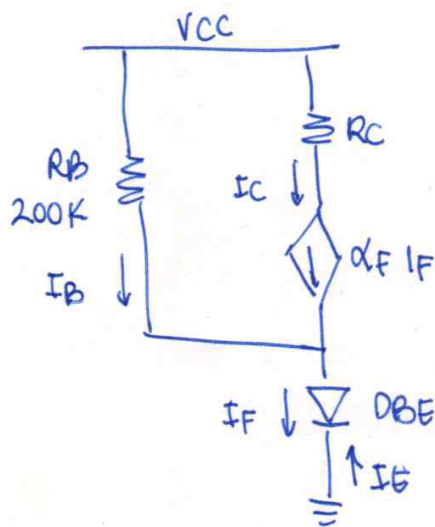 VCC
RB
200K
RC
IC
αF IF
IB
IF
DBE
IE